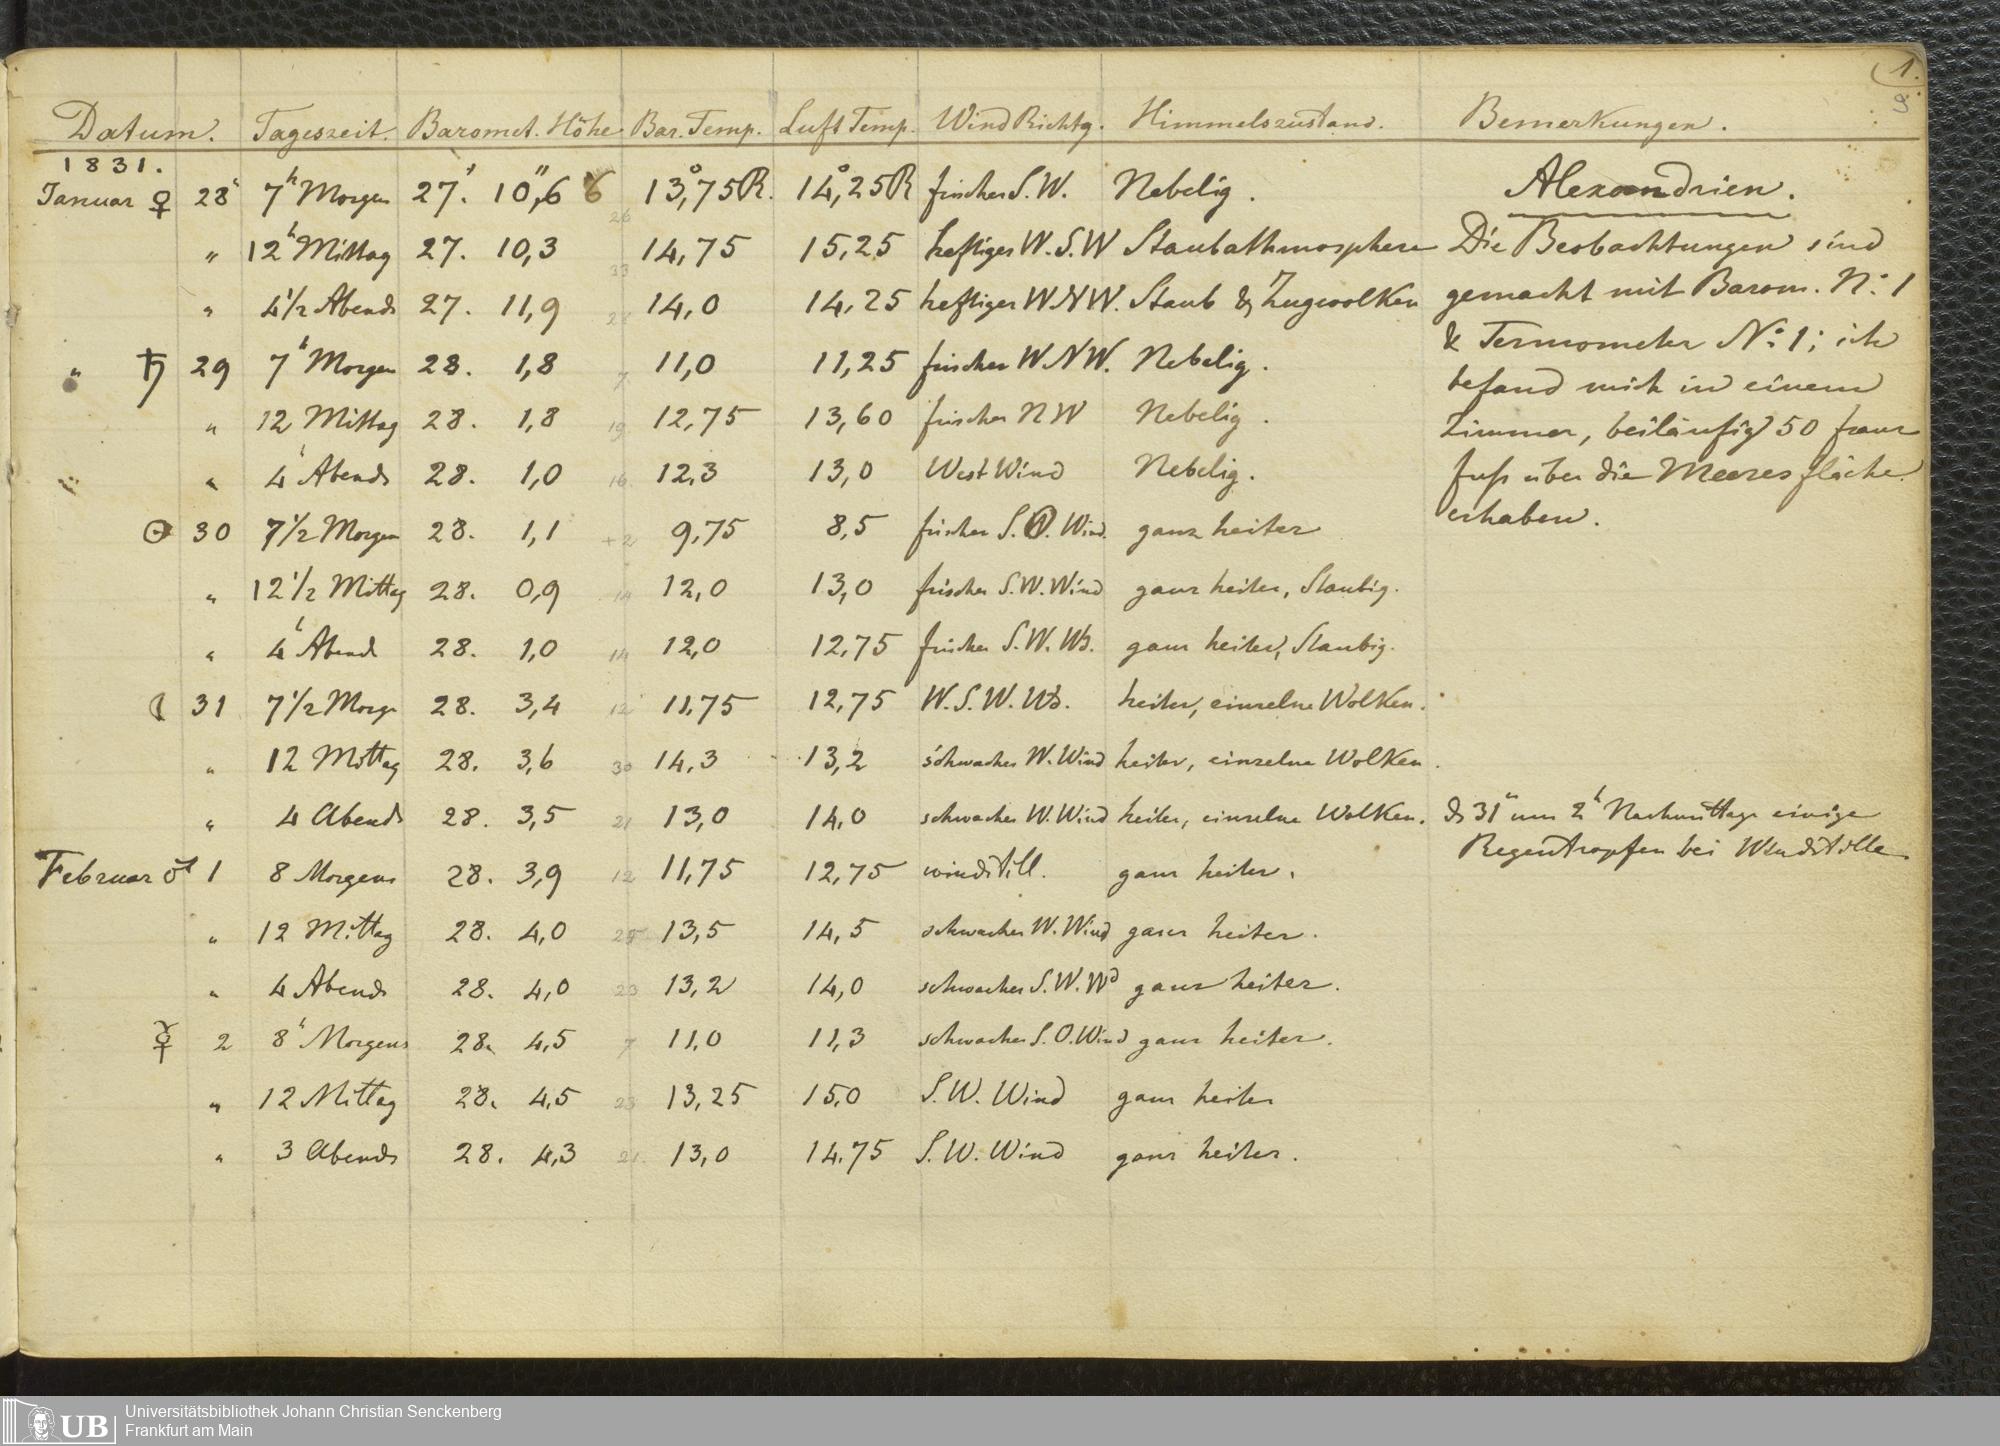 1.
9
Datum. Tageszeit. Baromet. Höhe Bar. Temp. Luft Temp. Wind Richtg. Himmelszustand. Bemerkungen.
1831.
Januar ♀ 28 7h Morgen 27.' 10,"6 13,°75 R. 14,°25 R frischer S.W. Nebelig. Alexandrien.
" 12h Mittag 27. 10,3 14,75 15,25 heftiger W.S.W Staubathmosphere Die Beobachtungen sind
" 4½ Abends 27. 11,9 14,0 14,25 heftiger WNW. Staub & Zugwolken gemacht mit Barom. N: 1
" ♄ 29 7h Morgen 28. 1,8 7 11,0 11,25 frischer WNW. Nebelig. & Termometer N: 1; ich
befand mich in einem
" 12 Mittag 28. 1,8 19 12,75 13,60 frischer NW Nebelig. Zimmer, beiläufig 50 franz
" 4h Abends 28. 1,0 16 12,3 13,0 West Wind Nebelig. fuß über die Meeresfläche
☉ 30 7½ Morgen 28. 1,1 +2 9,75 8,5 frischer S. Wind. ganz heiter erhaben.
" 12½ Mittag 28. 0,9 14 12,0 13,0 frischer S.W. Wind ganz heiter, Staubig.
" 4h Abends 28. 1,0 14 12,0 12,75 frischer S.W. Wd. ganz heiter, Staubig.
☾ 31 7½ Morge 28. 3,4 12 11,75 12,75 W.S.W. Wd. heiter, einzelne Wolken.
" 12 Mittag 28. 3,6 30 14,3 13,2 schwacher W. Wind heiter, einzelne Wolken.
" 4 Abends 28. 3,5 21 13,0 14,0 schwacher W. Wind heiter, einzelne Wolken. d 31n um 2h Nachmittags einige
Regentropfen bei Windstille
Februar ♂ 1 8 Morgens 28. 3,9 12 11,75 12,75 windstill. ganz heiter.
" 12 Mittag 28. 4,0 25 13,5 14,5 schwacher W. Wind ganz heiter.
" 4 Abends 28. 4,0 23 13,2 14,0 schwacher S.W. Wd ganz heiter.
☿ 2 8h Morgens 28. 4,5 7 11,0 11,3 schwacher S.O. Wind ganz heiter.
" 12 Mittag 28. 4,5 23 13,25 15,0 S.W. Wind ganz heiter
" 3 Abends 28. 4,3 21. 13,0 14,75 S.W. Wind ganz heiter.
UB
Universitätsbibliothek Johann Christian Senckenberg
Frankfurt am Main